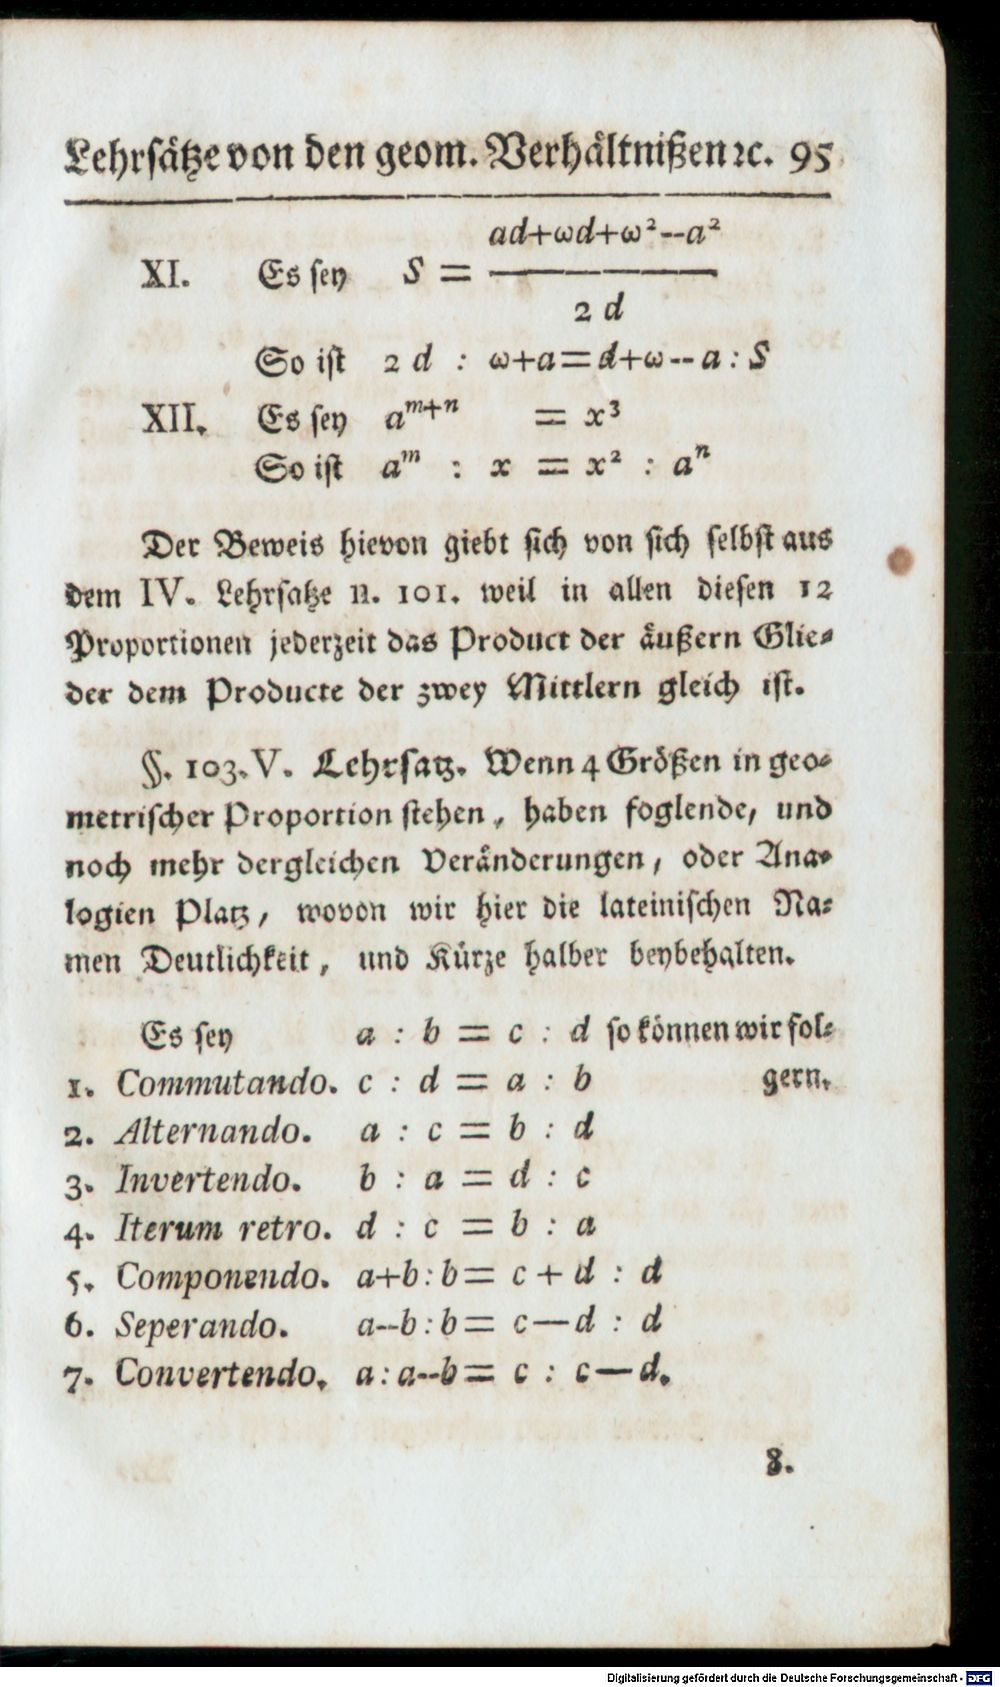 Lehrsätze von den geom. Verhältnißen ꝛc. 95
ad+ωd+ω²--a²
XI. Es sey S = ―――
2 d
So ist 2 d : ω+a=d+ω--a : S
XII. Es sey aᵐ⁺ⁿ = x³
So ist aᵐ : x = x² : aⁿ
Der Beweis hievon giebt sich von sich selbst aus
dem IV. Lehrsatze n. 101. weil in allen diesen 12
Proportionen jederzeit das Product der äußern Glie-
der dem Producte der zwey Mittlern gleich ist.
§. 103. V. Lehrsatz. Wenn 4 Größen in geo-
metrischer Proportion stehen, haben foglende, und
noch mehr dergleichen Veränderungen, oder Ana-
logien Platz, wovon wir hier die lateinischen Na-
men Deutlichkeit, und Kürze halber beybehalten.
Es sey a : b = c : d so können wir fol-
1. Commutando. c : d = a : b gern.
2. Alternando. a : c = b : d
3. Invertendo. b : a = d : c
4. Iterum retro. d : c = b : a
5. Componendo. a+b : b = c + d : d
6. Seperando. a--b : b = c — d : d
7. Convertendo. a : a--b = c : c — d.
8.
Digitalisierung gefördert durch die Deutsche Forschungsgemeinschaft - DFG